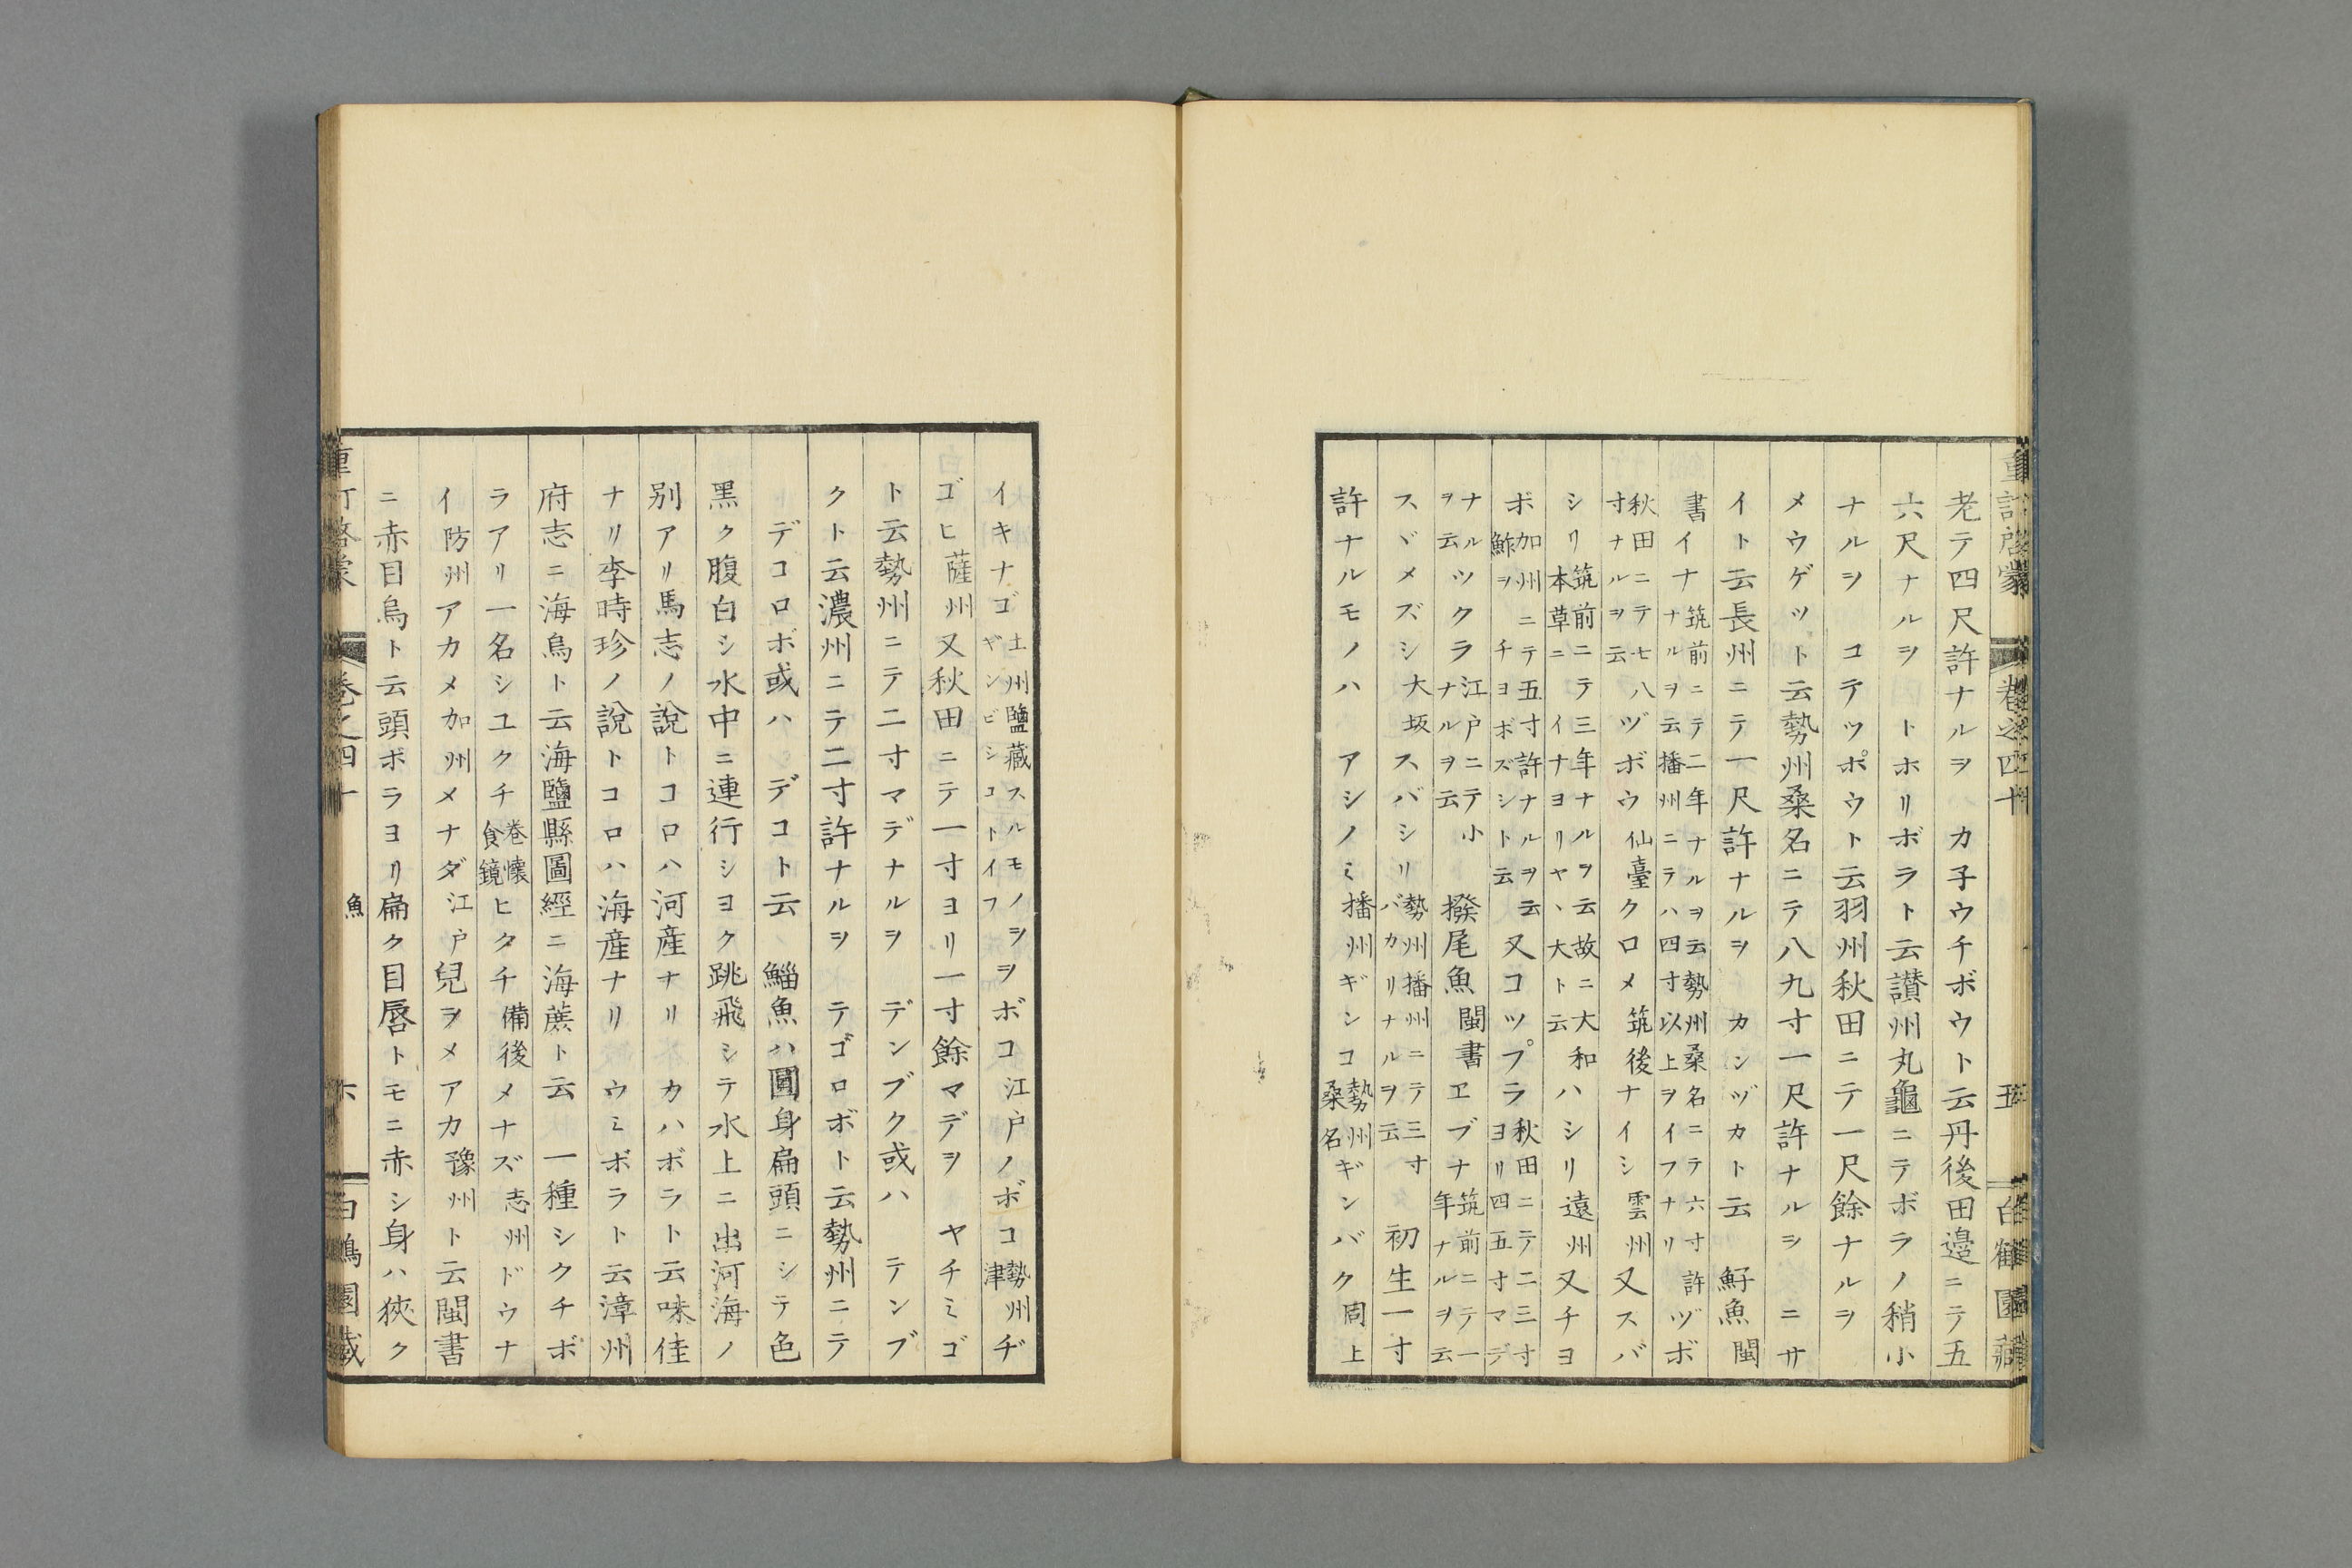 重訂啓蒙 巻之四十 五 白鶴園藏
老テ四尺許ナルヲ カ子ウチボウト云丹後田邉ニテ五
六尺ナルヲ トホリボラト云讃州丸龜ニテボラノ稍小
ナルヲ コテツポウト云羽州秋田ニテ一尺餘ナルヲ
メウゲツト云勢州桑名ニテ八九寸一尺許ナルヲ ニサ
イト云長州ニテ一尺許ナルヲ カンヅカト云 䱷魚閩
書イナ筑前ニテ二年ナルヲ云勢州桑名ニテ六寸許ナルヲ云播州ニラハ四寸以上ヲイフナリ ヅボ
秋田ニテ七八寸ナルヲ云 ヅボウ仙臺クロメ筑後ナイシ雲州又スバ
シリ筑前ニテ三年ナルヲ云故ニ大和本草ニイナヨリヤヽ大ト云 ハシリ遠州又チヨ
ボ加州ニテ五寸許ナルヲ云鮓ヲチヨボズシト云 又コツプラ秋田ニテ二三寸ヨリ四五寸マデ
ナルヲ云 ツクラ江戸ニテ小ナルヲ云 撥尾魚閩書エブナ筑前ニテ一年ナルヲ云
スヾメズシ大坂スバシリ勢州播州ニテ三寸バカリナルヲ云 初生一寸
許ナルモノハ アシノミ播州ギンコ勢州桑名ギンバク同上
イキナゴ土州鹽藏スルモノヲギンビシコトイフ ヲボコ江戸ノボコ勢州津チ
ゴヒ薩州又秋田ニテ一寸ヨリ一寸餘マデヲ ヤチミゴ
ト云勢州ニテ二寸マデナルヲ デンブク或ハ テンブ
クト云濃州ニテ二寸許ナルヲ テゴロボト云勢州ニテ
デコロボ或ハ デコト云 鯔魚ハ圓身扁頭ニシテ色
黑ク腹白シ水中ニ連行シヨク跳飛シテ水上ニ出河海ノ
別アリ馬志ノ說トコロハ河産ナリ カハボラト云味佳
ナリ李時珍ノ說トコロハ海産ナリ ウミボラト云漳州
府志ニ海烏ト云海鹽縣圖經ニ海䕨ト云 一種シクチボ
ラアリ一名シユクチ巻懷食鏡ヒタチ備後メナズ志州ドウナ
イ防州アカメ加州メナダ江戸兒ヲメアカ豫州ト云閩書
ニ赤目烏ト云頭ボラヨリ扁ク目唇トモニ赤シ身ハ狹ク
重訂啓蒙 巻之四十 魚 六 白鶴園藏